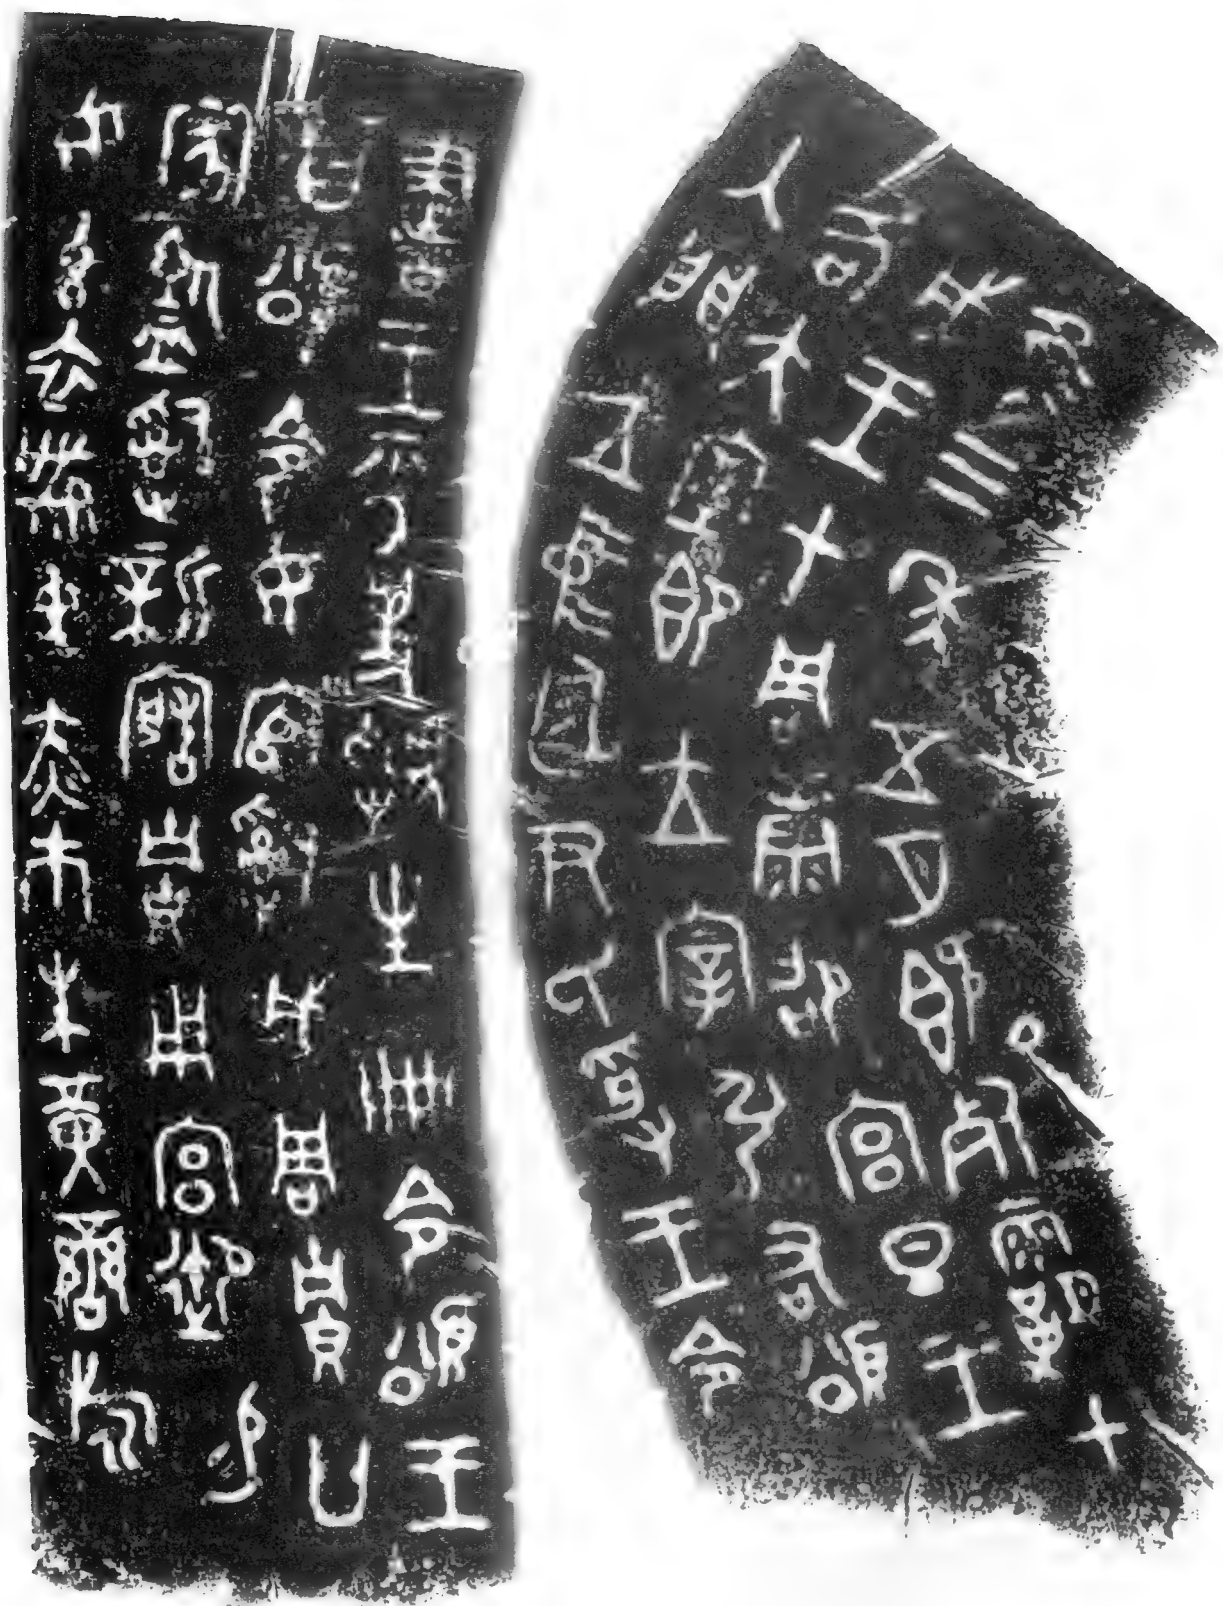 隹三年五月既死霸甲
戌王才周康卲宮旦王
各大室即立宰弘右頌
入門立中廷尹氏受王令
書王乎史虢生冊令頌王
曰頌令女官𤔲成周貯廿
家監𤔲新造貯用宮御易
女玄衣黹屯赤巿朱黃䜌旂